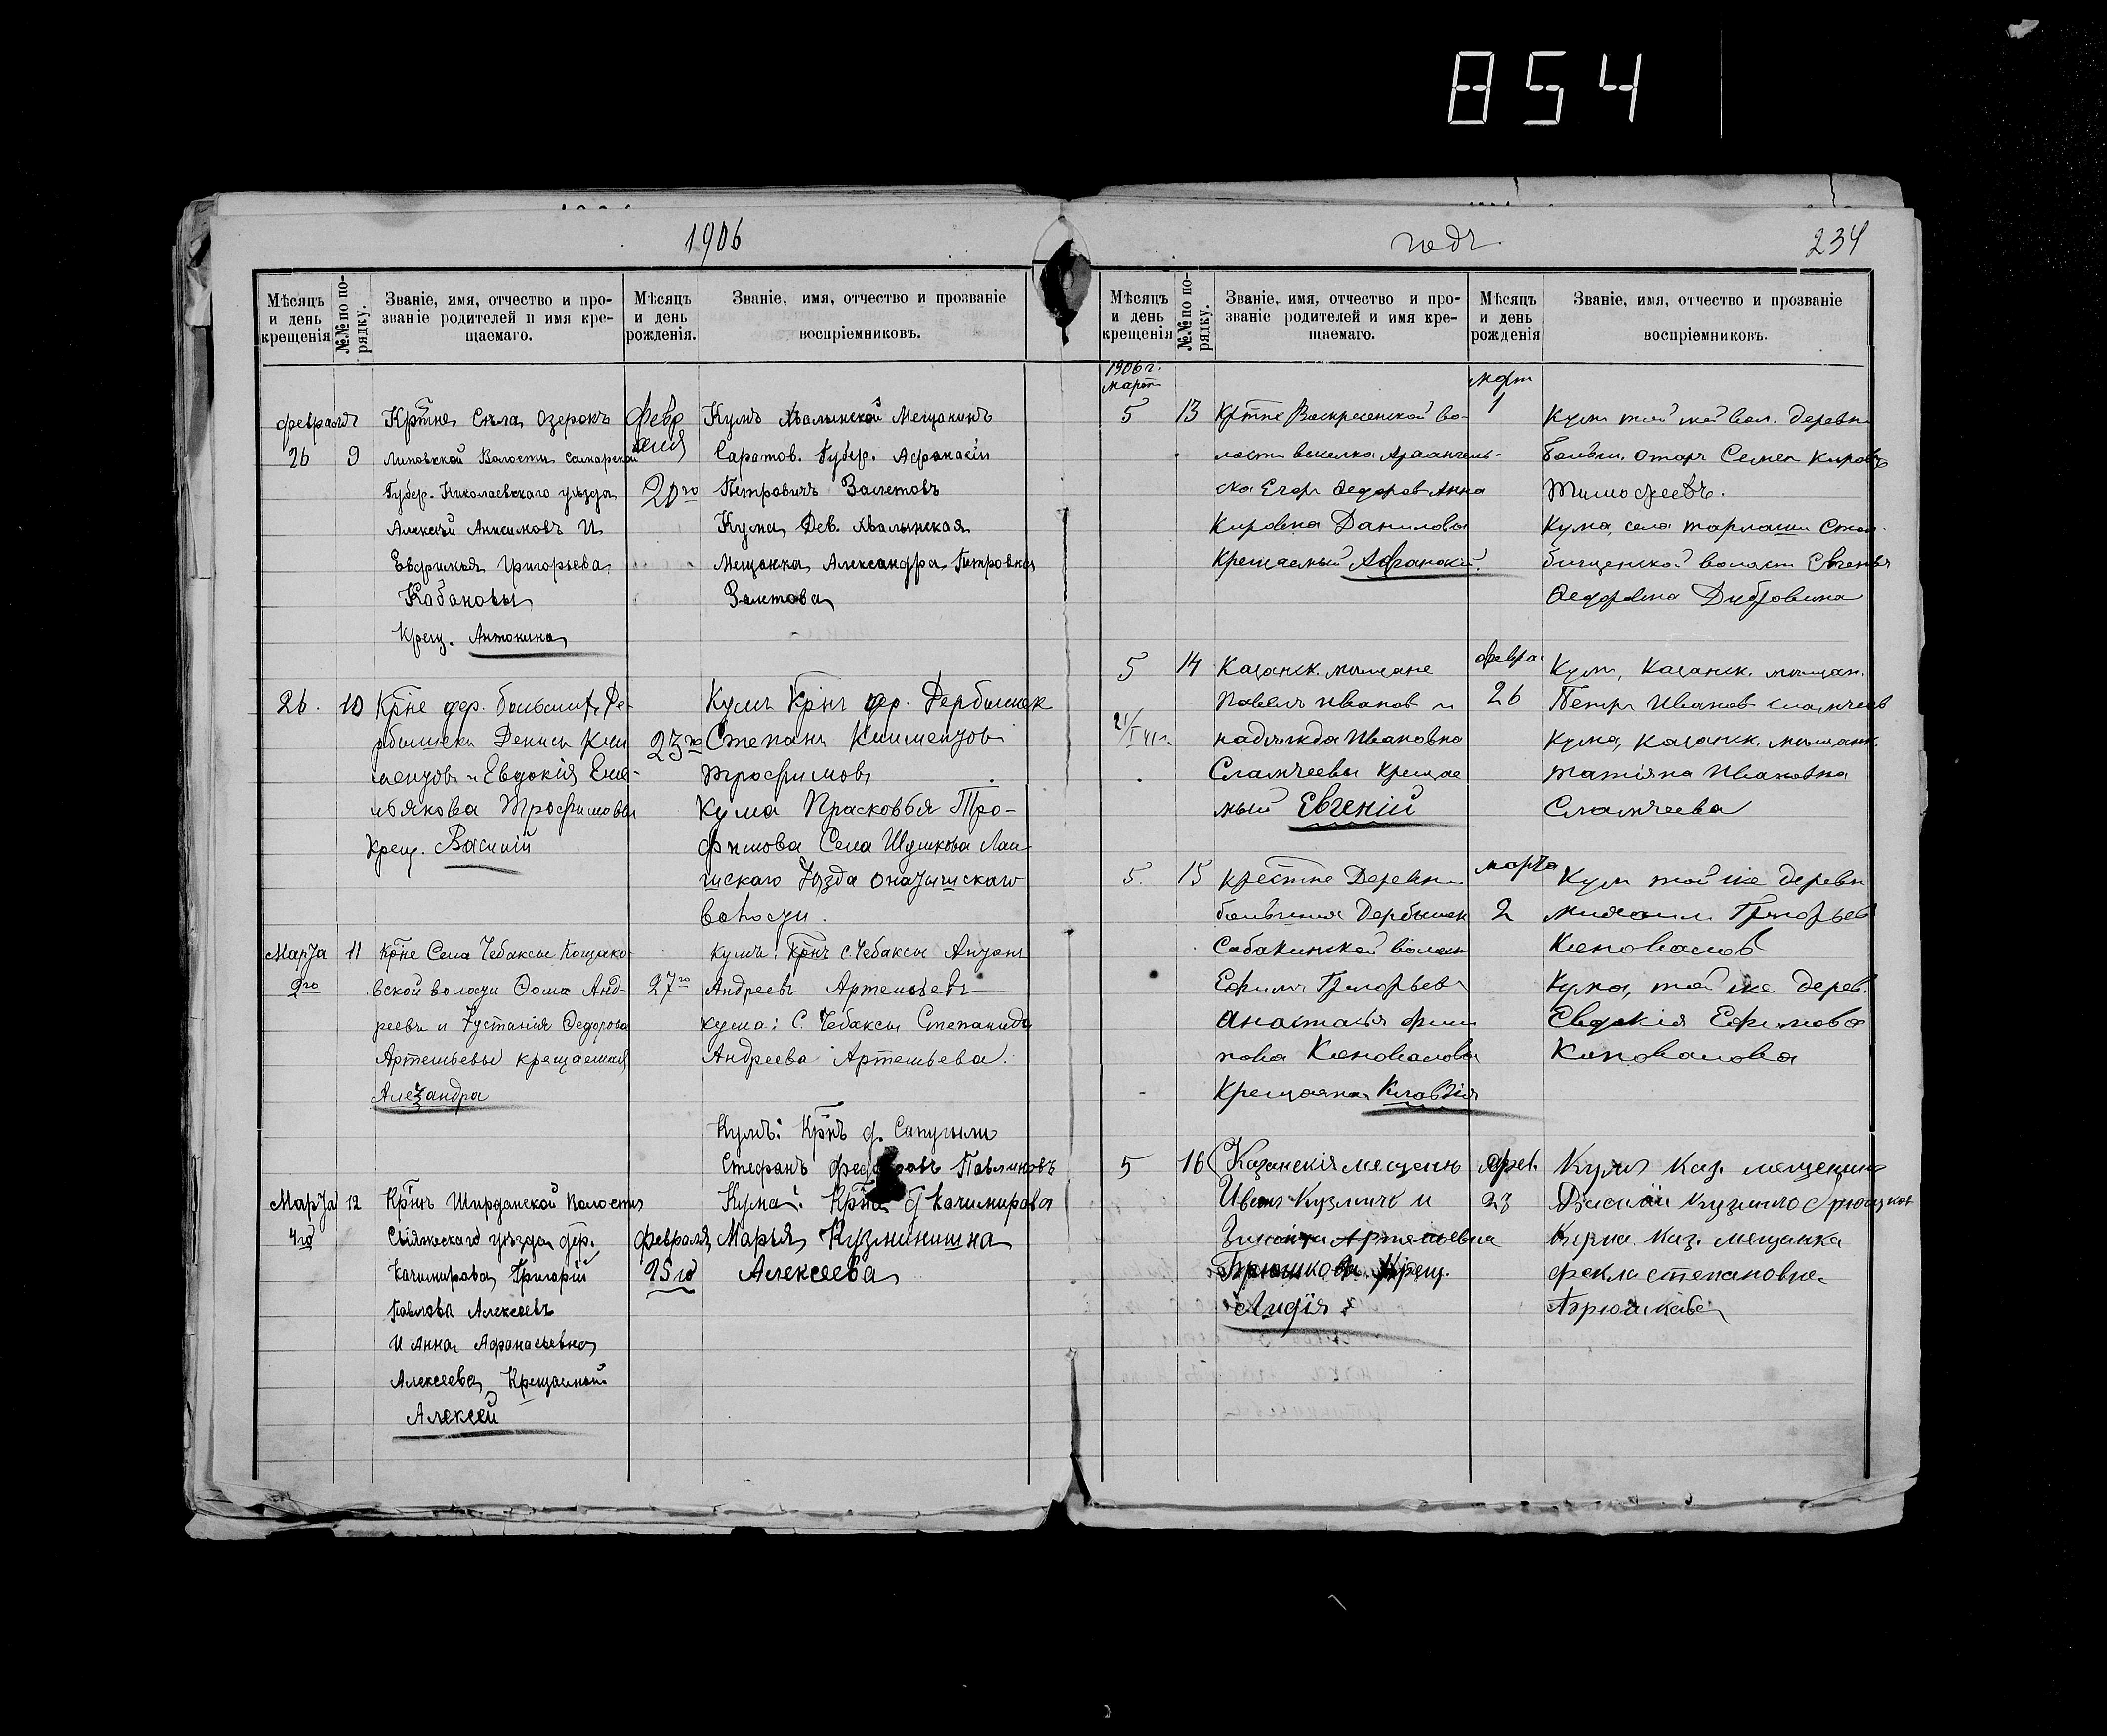 854
1906
годъ
234
Мѣсяцъ и день крещенія
№№ по порядку.
Званіе, имя, отчество и прозваніе родителей и имя крещаемаго.
Мѣсяцъ и день рожденія.
Званіе, имя, отчество и прозваніе воспріемниковъ.
февраля
26
9
Крт҃не Села Озерокъ
Липовской Волости Самарской
Губер. Николаевскаго уѣзда
Алексѣй Анисимовъ и
Евфимья Григорьева
Кабановы
Крещ. Антонина
февраля
20го
Кумъ Хвалынской Мещанинъ
Саратов. Губер. Афанасій
Петровичъ Залетовъ
Кума, Дев. Хвалынская
Мещанка Александра Петровна
26.
10
Кр҃не дер. большихъ Де-
рбышекъ Денисъ Кли
менцовъ и Евдокія Еме-
льянова Трофимовы
Крещ. Василій
23го
Кумъ Кр҃нъ дер. Дербышек
Степанъ Клименцов
Трофимовъ
Кума Прасковья Тро-
фимова Села Шумкова Лаи-
шскаго Уѣзда
волости.
Марта
2го
11
Кр҃не Села Чебаксы Кощако-
вской волости Фома Анд-
реевъ и Устинія Федорова
Артемьевы крещаемая
Алеѯандра
27го
Кумъ: Кр҃нъ с. Чебаксы Антонъ
Андреевъ Артемьевъ
Кума: С. Чебаксы Степанида
Андреева Артемьева.
Марта
4го
12
Кр҃нъ Ширданской Волости
Свіяжскаго уѣзда дер.
Качимирова, Григорій
Павловъ Алексеевъ
И Анна Афанасьевна
Алексеева, Крещаемый
Алексей
февраля
25го
Кумъ: Кр҃нъ д.
Стефанъ Федоровъ Павлиновъ
Кума: Кр҃на д Качимирова
Марья Кузминишна
Алексеева
Мѣсяцъ и день крещенія
№№ по порядку.
Званіе, имя, отчество и прозваніе родителей и имя крещаемаго.
Мѣсяцъ и день рожденія
Званіе, имя, отчество и прозваніе воспріемниковъ.
1906 г.
март
5
13
Крт҃не Воскресенской во-
лости выселка Архангель-
ска Егор Федоров Анна
Кировна Даниловы
Крещаемый Афанасій
март
1
Кум той же вол. деревни
Семен Киров
Тимофеевъ.
Кума, села Тарлаши Стол-
бищенской волости Евгенья
Федоровна Дубровина
5
14
Казанск. мещане
Павелъ Иванов и
надежда Ивановна
Слатчеевы креща
мый Евгеній
февра
26
Кум, Казанск. мещан.
Петр Иванов Слатчеев
Кума, Казанск. мещанк.
Татіяна Ивановна
Слатчеева
5.
15
крестне Деревни
большия Дербышек
Собакинской волост
Ефимъ Григорьевъ
Анастасья фили
пова Коновалова
Крещаяма Клавдія
марта
2
Кум той же деревн
михаил Григорьев
Коновалов
Кума, той же дерев.
Евдокія Ефимова
Коновалова
5
16
Казанскія мещене
Иванъ Кузмичъ и
Зинаида Артемьевна
Брюшкова. Крещ.
Лидія
фев.
23
Кумъ Каз. мещенинъ
Василій Кузмичъ Брюшков
Кума. Каз. мещанка
фекла степановна
Брюшкова